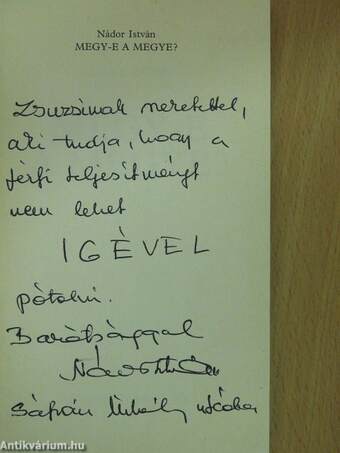 Nádor István
MEGY-E A MEGYE?
Zsuzsinak szeretettel,
aki tudja, hogy a
férfi teljesítményt
nem lehet
IGÉVEL
pótolni.
Barátsággal
Mihály
Antikvárium.hu